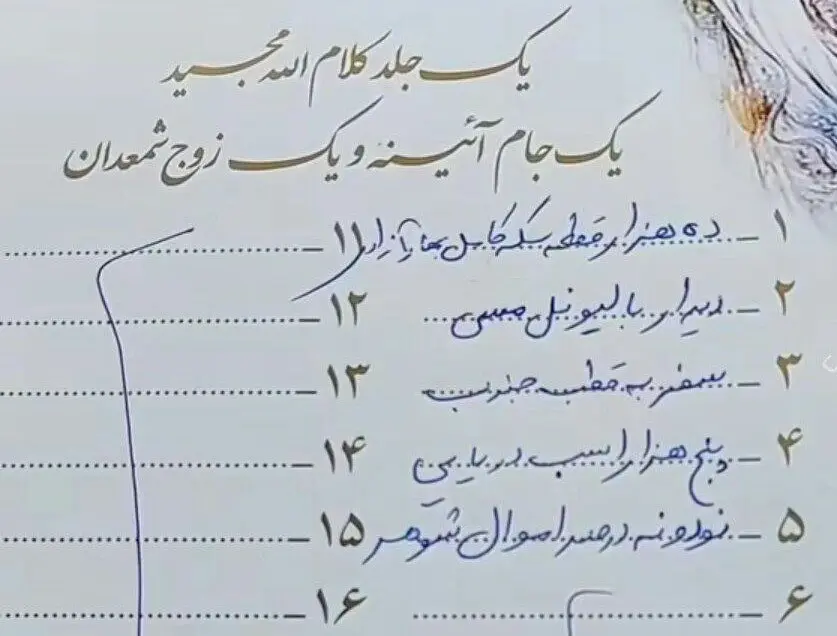 یک جلد کلام الله مجید
یک جام آئینه و یک زوج شمعدان
۱ _ ده هزار قطعه سکه کامل بهار آزادی
۲ _ دیدار با لیونل مسی
۳ _ سفر به قطب جنوب
۴ _ پنج هزار اسب دریایی
۵ _ نود و نه درصد اموال شوهر
۶ _
۱۱ _
۱۲ _
۱۳ _
۱۴ _
۱۵ _
۱۶ _